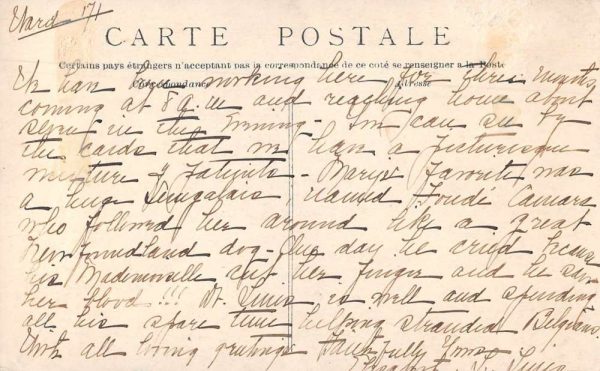 Ward 17
CARTE POSTALE
Certains pays étrangers n'acceptant pas la correspondance de ce coté se renseigner a la Poste
Correspondance Adresse
We have been working here for three months
coming at 8 a.m and reaching home about
seven in the Evening - You can see by
the cards that we have a picturesque
mixture of Patients - Marys Favorite was
a huge Senegalais named Foudé Camara
who followed her around like a great
Newfoundland dog - One day he cried because
his Mademoiselle cut her finger and he saw
her blood!!! is well and spending
all his spare time helping stranded Belgians.
With all loving greetings Faithfully Yours